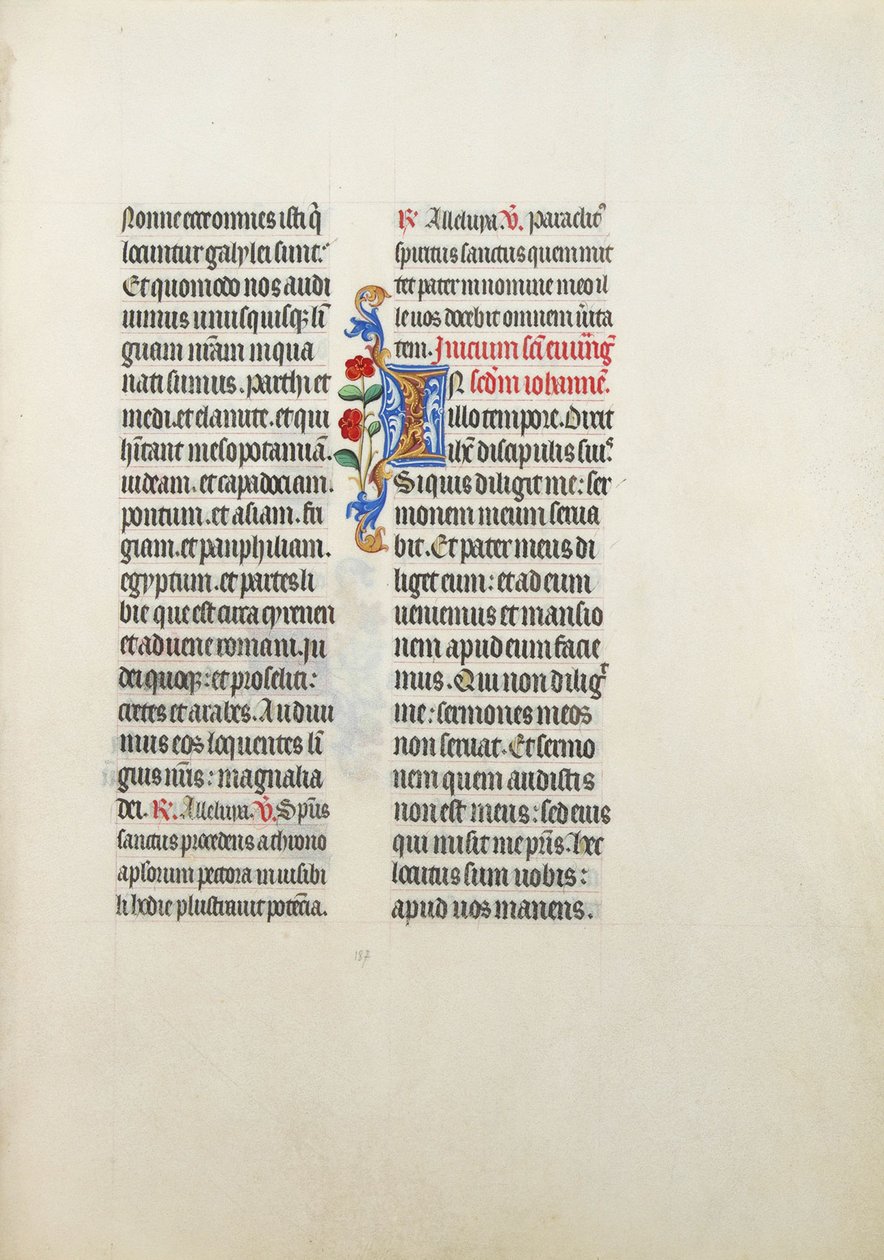 Nonne ecce omnes isti q̄
locuntur galylei sunt.
Et quomodo nos audi
uimus unusquisq; lī
guam nr̄am in qua
nati sumus. Parthi et
medi. et elamite. et qui
hītant mesopotamiā.
iudeam. et capadociam.
pontum. et asiam. fri
giam. et pamphiliam.
egyptum. et partes li
bie que est circa cyrenen
et aduene romani. Ju
dei quoq;: et proseliti:
cretes et arabes. Audiui
mus eos loquentes lī
guis nr̄is: magnalia
dei. R. Alleluya. V. Sp̄us
sanctus procedens a throno
apl̄orum pectora inuisibi
li hodie plustrauit potēcia.
R. Alleluya. V. Paraclit⁹
spiritus sanctus quem mit
tet pater in nomine meo il
le uos docebit omnem ūita
tem. Inicium scī euu̅ang̅
IN sed̄m iohannē.
illo tempore. Dixit
ihc̄ discipulis suis.
Siquis diligit me: ser
monem meum serua
bit. Et pater meus di
liget eum: et ad eum
ueniemus et mansio
nem apud eum facie
mus. Qui non diligʳ
me: sermones meos
non seruat. Et sermo
nem quem audistis
non est meus: sed eius
qui misit me pr̄is. hec
locutus sum uobis:
apud uos manens.
187